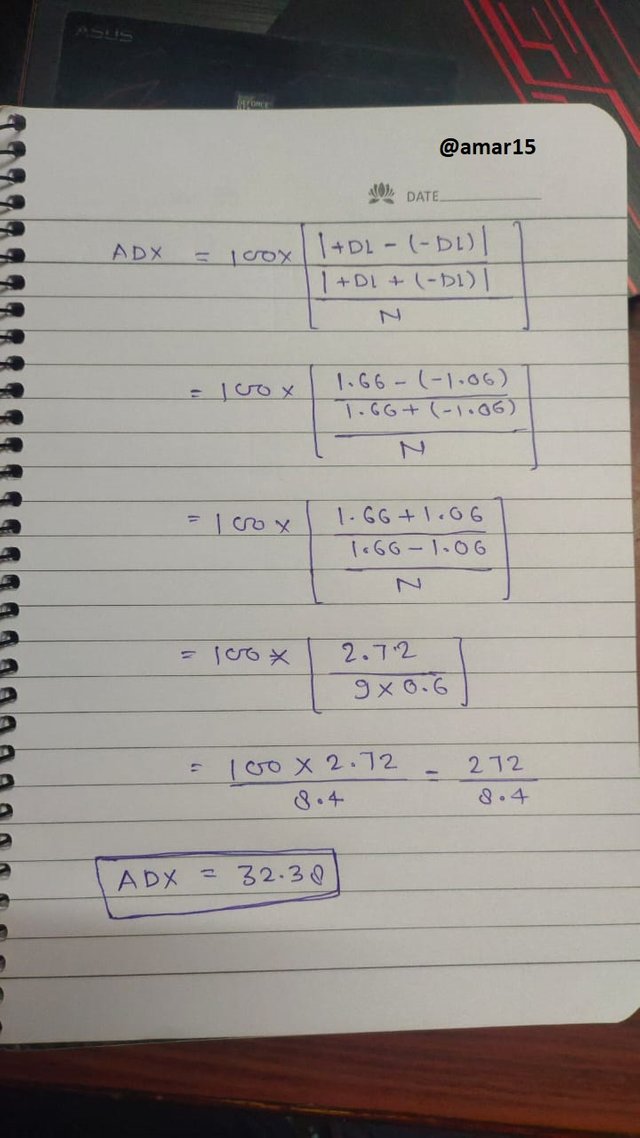 ASUS
GEFORCE
@amar15
DATE
ADX = 100 x [ |+DI - (-DI)| / |+DI + (-DI)| / N ]
= 100 x [ 1.66 - (-1.06) / 1.66 + (-1.06) / N ]
= 100 x [ 1.66 + 1.06 / 1.66 - 1.06 / N ]
= 100 x [ 2.72 / 9 x 0.6 ]
= 100 x 2.72 / 8.4 = 272 / 8.4
ADX = 32.38